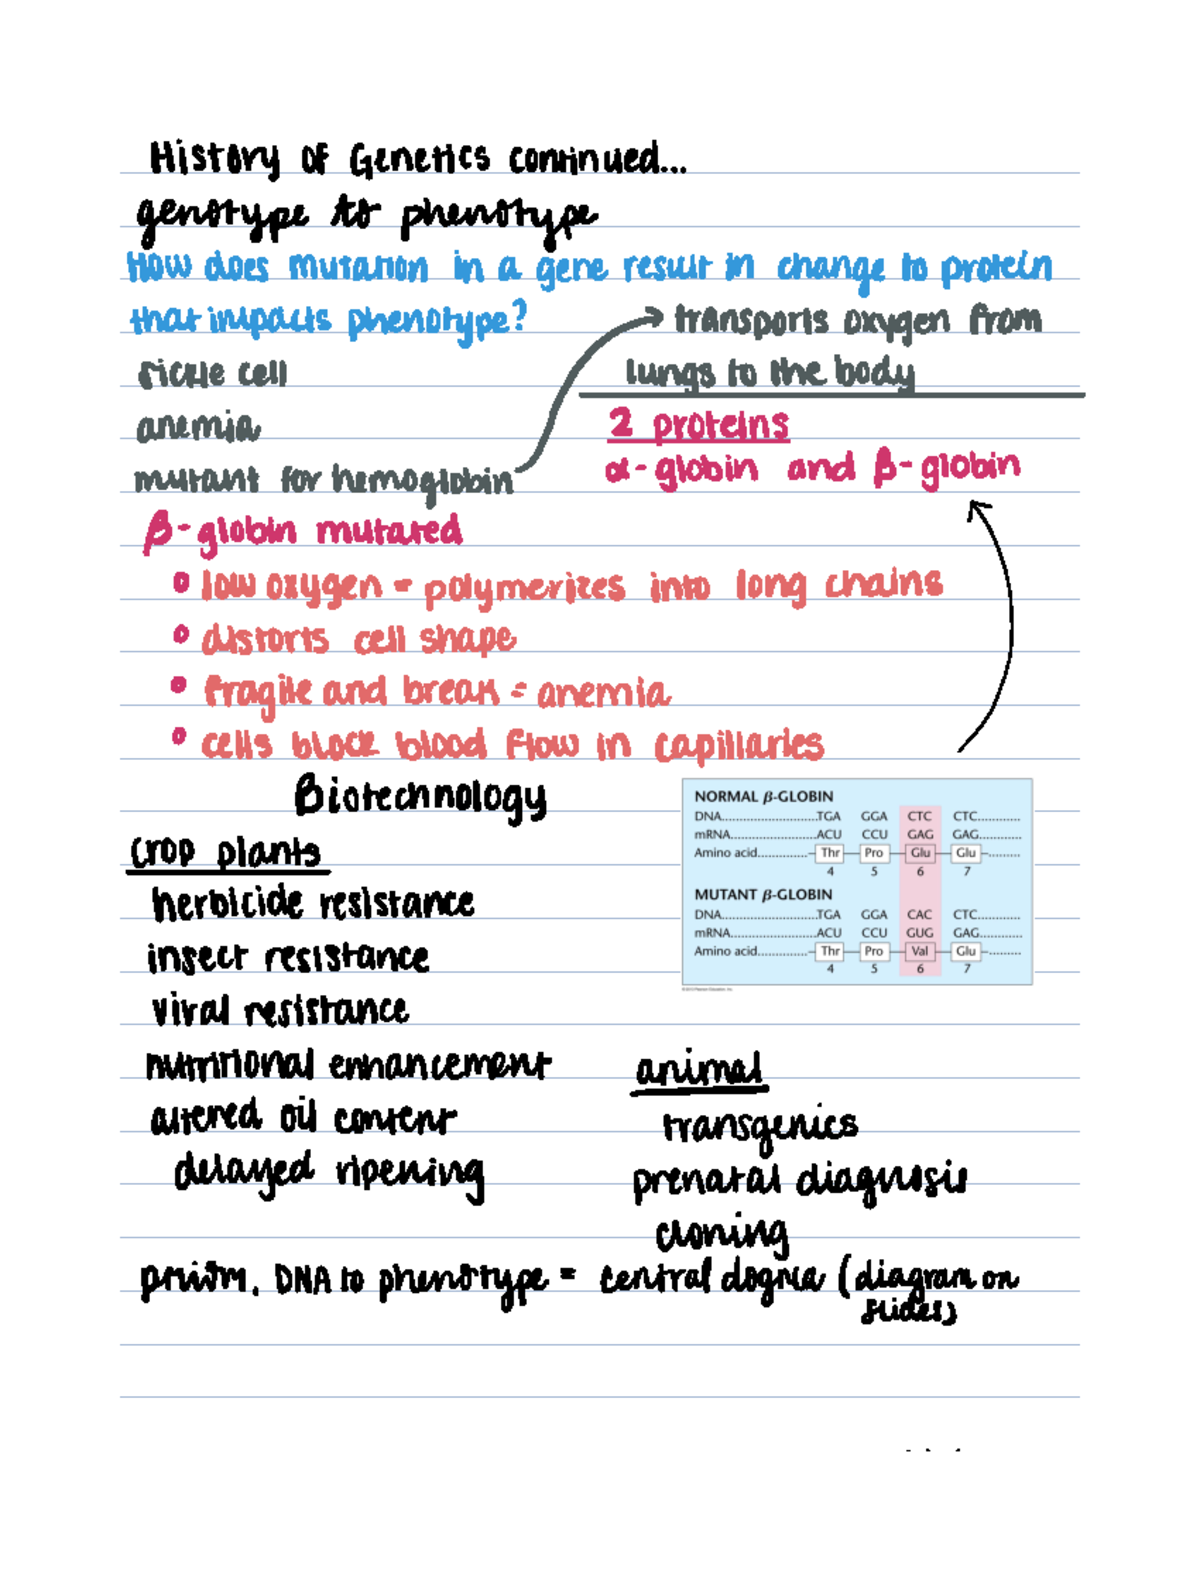 History of Genetics continued...
genotype to phenotype
How does mutation in a gene result in change to protein
that impacts phenotype?
transports oxygen from
lungs to the body
sickle cell
anemia
mutant for hemoglobin
2 proteins
α-globin and β-globin
β-globin mutated
low oxygen = polymerizes into long chains
distorts cell shape
fragile and break = anemia
cells block blood flow in capillaries
Biotechnology
crop plants
herbicide resistance
insect resistance
viral resistance
nutritional enhancement
altered oil content
delayed ripening
NORMAL β-GLOBIN
DNA............................TGA GGA CTC CTC............
mRNA.........................ACU CCU GAG GAG............
Amino acid.............. Thr Pro Glu Glu .........
4 5 6 7
MUTANT β-GLOBIN
DNA............................TGA GGA CAC CTC............
mRNA.........................ACU CCU GUG GAG............
Amino acid.............. Thr Pro Val Glu .........
4 5 6 7
animal
transgenics
prenatal diagnosis
cloning
DNA to phenotype = central dogma (diagram on
slides)